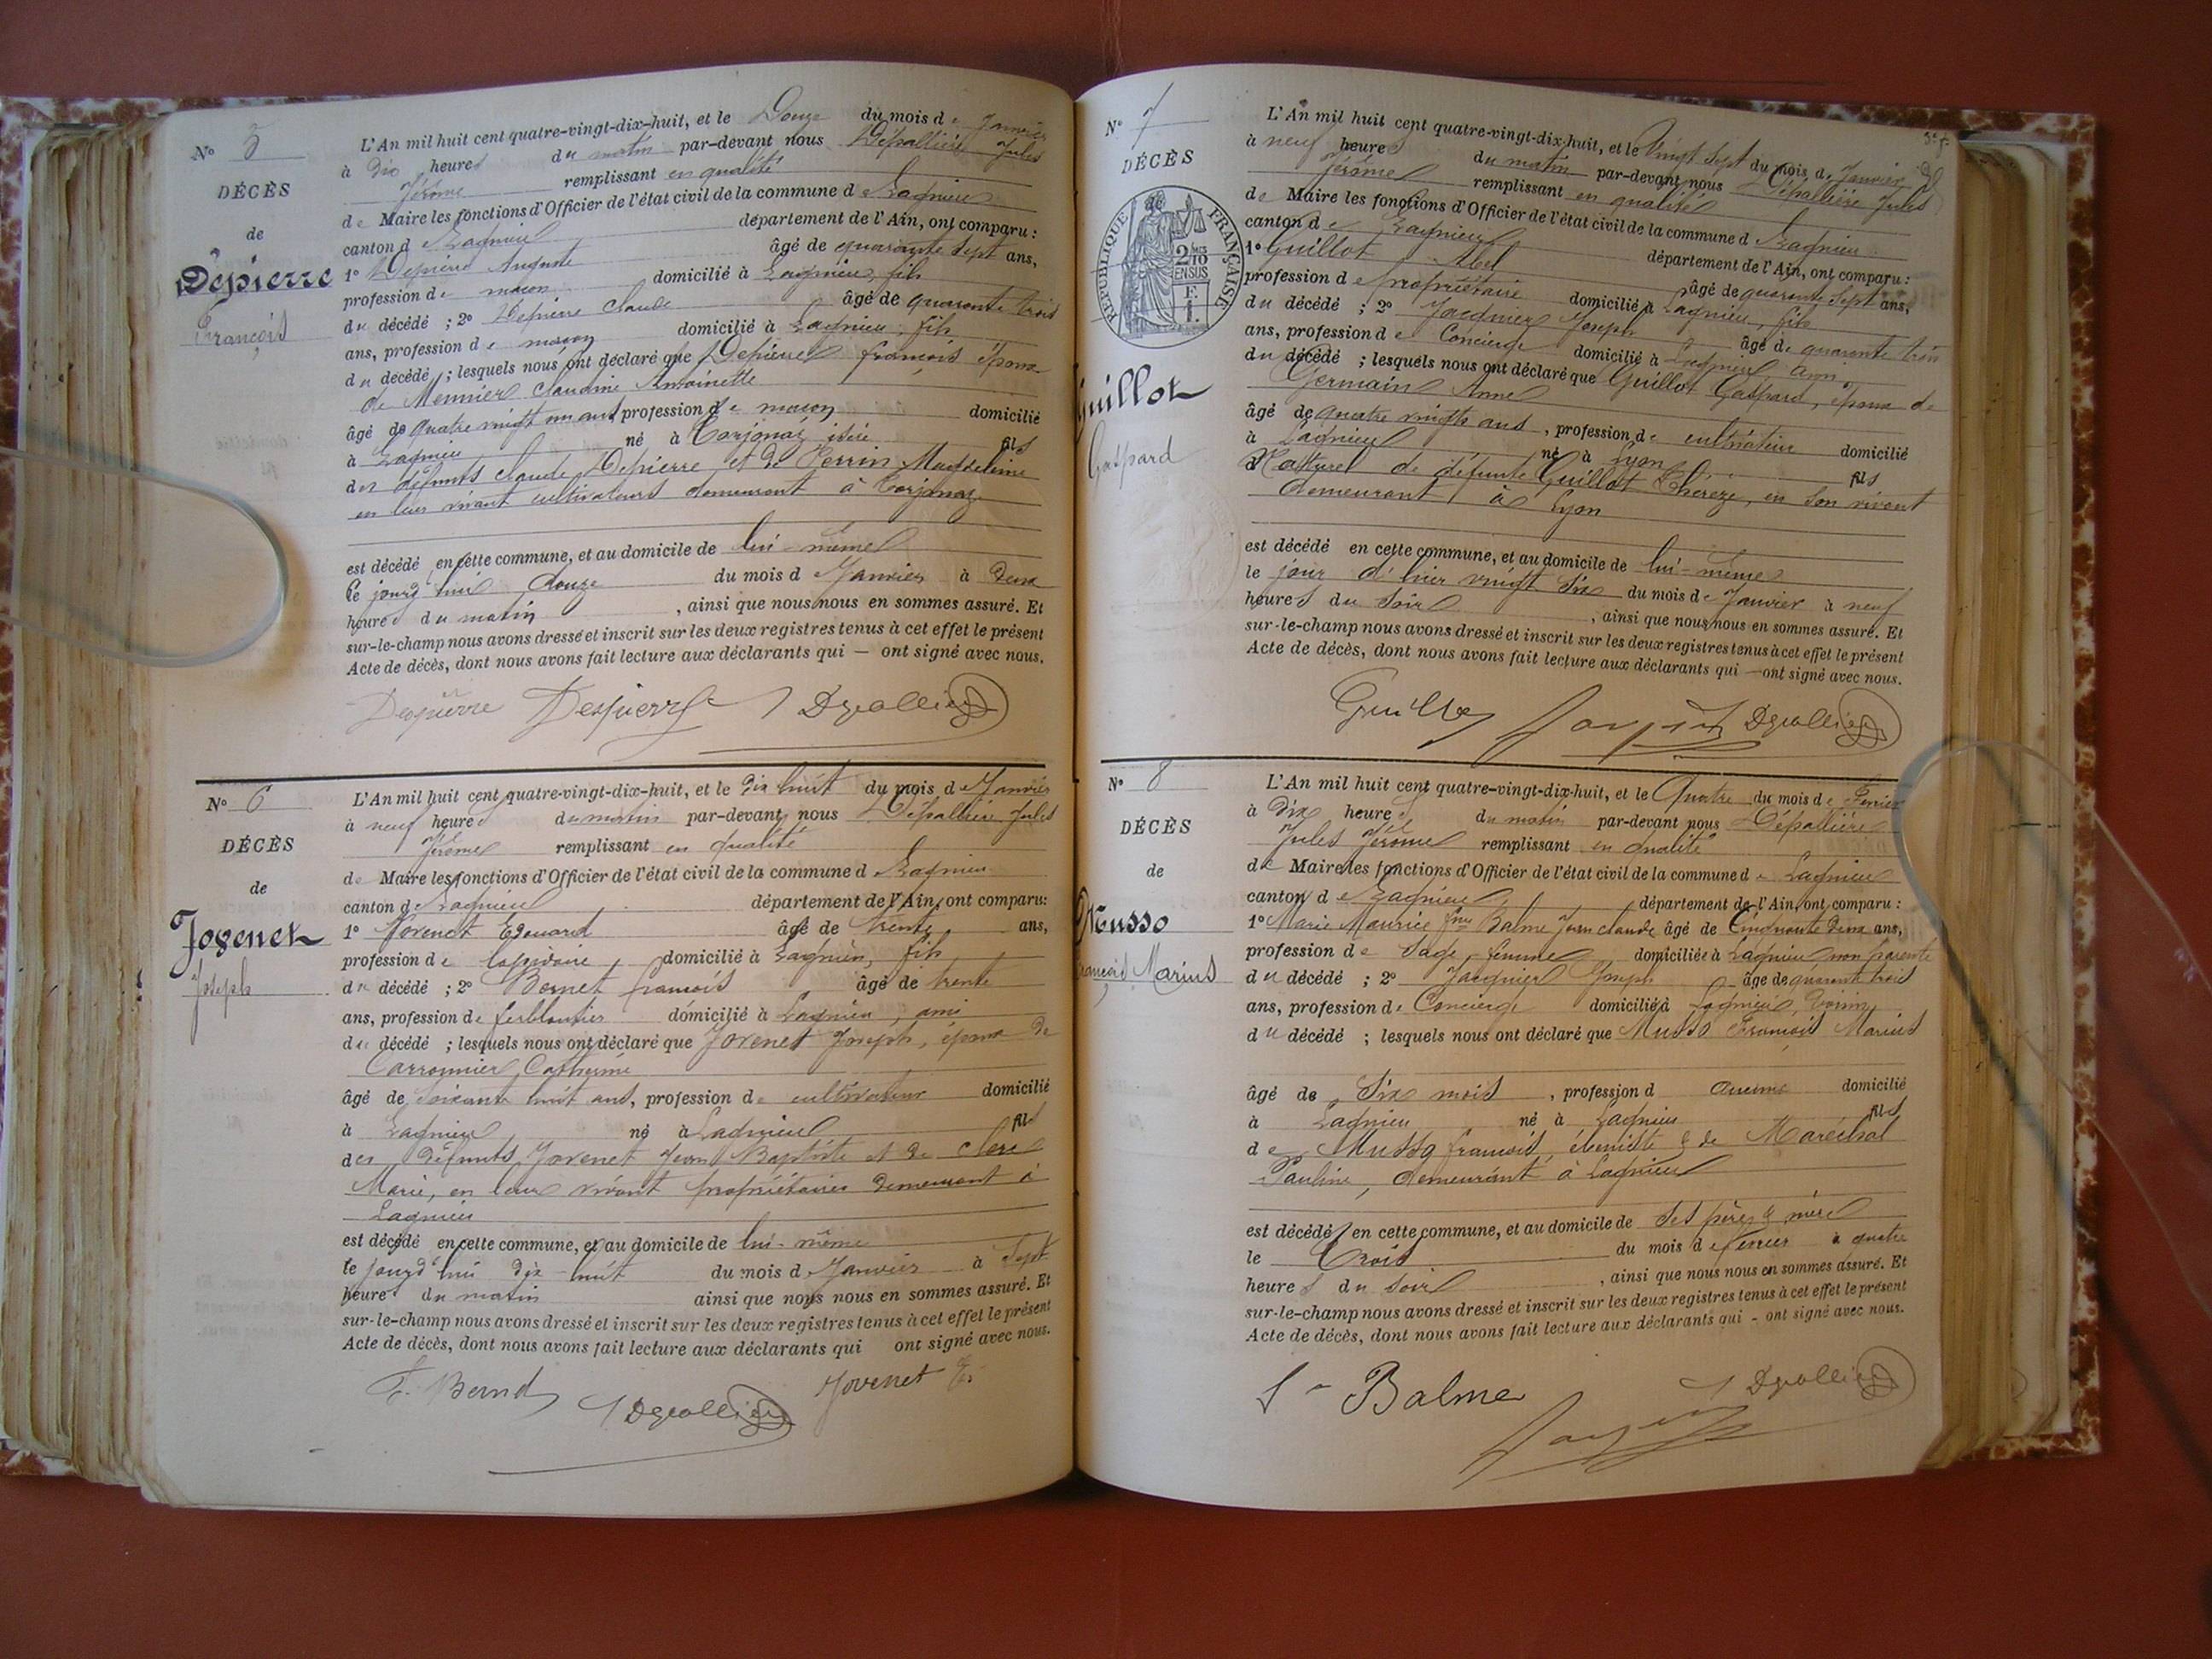 N° 5
DÉCÈS
de
Depierre
François
L'An mil huit cent quatre-vingt-dix-huit, et le Douze du mois de Janvier
à Dix heures du matin par-devant nous Dépallière Jules
Jérôme remplissant en qualité
de Maire les fonctions d'Officier de l'état civil de la commune de Lagnieu
canton de Lagnieu département de l'Ain, ont comparu :
1° Depierre Auguste âgé de quarante sept ans,
profession de maçon domicilié à Lagnieu, fils
du décédé ; 2° Depierre Claude âgé de quarante trois
ans, profession de maçon domicilié à Lagnieu, fils
du décédé ; lesquels nous ont déclaré que Depierre françois époux
de Meunier Claudine Antoinette
âgé de quatre vingt un ans, profession de maçon domicilié
à Lagnieu né à isère fils
des défunts Claude Depierre et de Perrin Magdeleine
en leur vivant cultivateurs demeurant à
est décédé en cette commune, et au domicile de lui-même
le jourd'hui douze du mois de Janvier à Deux
heures du matin, ainsi que nous nous en sommes assuré. Et
sur-le-champ nous avons dressé et inscrit sur les deux registres tenus à cet effet le présent
Acte de décès, dont nous avons fait lecture aux déclarants qui — ont signé avec nous.
Depierre Despierre J Dépallière
N° 6
DÉCÈS
de
Jovenet
Joseph
L'An mil huit cent quatre-vingt-dix-huit, et le dix huit du mois de Janvier
à neuf heures du matin par-devant nous Dépallière Jules
Jérôme remplissant en qualité
de Maire les fonctions d'Officier de l'état civil de la commune de Lagnieu
canton de Lagnieu département de l'Ain, ont comparu :
1° Jovenet Edouard âgé de trente ans,
profession de lapidaire, domicilié à Lagnieu, fils
du décédé ; 2° Bernet françois âgé de trente
ans, profession de ferblantier domicilié à Lagnieu, ami
du décédé ; lesquels nous ont déclaré que Jovenet Joseph, époux de
Carronnier Catherine
âgé de soixante huit ans, profession de cultivateur domicilié
à Lagnieu, né à Lagnieu fils
des défunts Jovenet Jean Baptiste et de Clerc
Marie, en leur vivant propriétaires demeurant à
Lagnieu
est décédé en cette commune, et au domicile de lui-même
le jourd'hui dix-huit du mois de Janvier à Sept
heures du matin ainsi que nous nous en sommes assuré. Et
sur-le-champ nous avons dressé et inscrit sur les deux registres tenus à cet effet le présent
Acte de décès, dont nous avons fait lecture aux déclarants qui ont signé avec nous.
F. Bernet J Dépallière Jovenet
N° 7
DÉCÈS
RÉPUBLIQUE FRANÇAISE
Guillot
Gaspard
L'An mil huit cent quatre-vingt-dix-huit, et le Vingt Sept du mois de Janvier
à neuf heures du matin par-devant nous Dépallière Jules
Jérôme remplissant en qualité
de Maire les fonctions d'Officier de l'état civil de la commune de Lagnieu
canton de Lagnieu département de l'Ain, ont comparu :
1° Guillot Abel âgé de quarante sept ans,
profession de propriétaire domicilié à Lagnieu, fils
du décédé ; 2° Jacquier Joseph âgé de quarante trois
ans, profession de Concierge domicilié à Lagnieu ami
du décédé ; lesquels nous ont déclaré que Guillot Gaspard, époux de
Germain Anne
âgé de quatre vingts ans, profession de cultivateur domicilié
à Lagnieu né à Lyon fils
Naturel de défunte Guillot Thereze, en son vivant
demeurant à Lyon
est décédé en cette commune, et au domicile de lui-même
le jour d'hier vingt Six du mois de Janvier à neuf
heures du Soir, ainsi que nous nous en sommes assuré. Et
sur-le-champ nous avons dressé et inscrit sur les deux registres tenus à cet effet le présent
Acte de décès, dont nous avons fait lecture aux déclarants qui — ont signé avec nous.
Guillot Dépallière
N° 8
DÉCÈS
de
Musso
François Marius
L'An mil huit cent quatre-vingt-dix-huit, et le Quatre du mois de Février
à Dix heures du matin par-devant nous Dépallière
Jules Jérôme remplissant en qualité
de Maire les fonctions d'Officier de l'état civil de la commune de Lagnieu
canton de Lagnieu département de l'Ain, ont comparu :
1° Marie Maurice fme Balme Jean Claude âgé de Cinquante Deux ans,
profession de Sage-femme domiciliée à Lagnieu non parente
du décédé ; 2° Jacquier Joseph âgé de quarante trois
ans, profession de Concierge domicilié à Lagnieu, Voisin
du décédé ; lesquels nous ont déclaré que Musso François Marius
âgé de Six mois, profession d aucune domicilié
à Lagnieu né à Lagnieu fils
de Musso françois, ébéniste & de Maréchal
Pauline, demeurant à Lagnieu
est décédé en cette commune, et au domicile de Ses père & mère
le Trois du mois de février à quatre
heures du Soir, ainsi que nous nous en sommes assuré. Et
sur-le-champ nous avons dressé et inscrit sur les deux registres tenus à cet effet le présent
Acte de décès, dont nous avons fait lecture aux déclarants qui - ont signé avec nous.
Balme J Dépallière